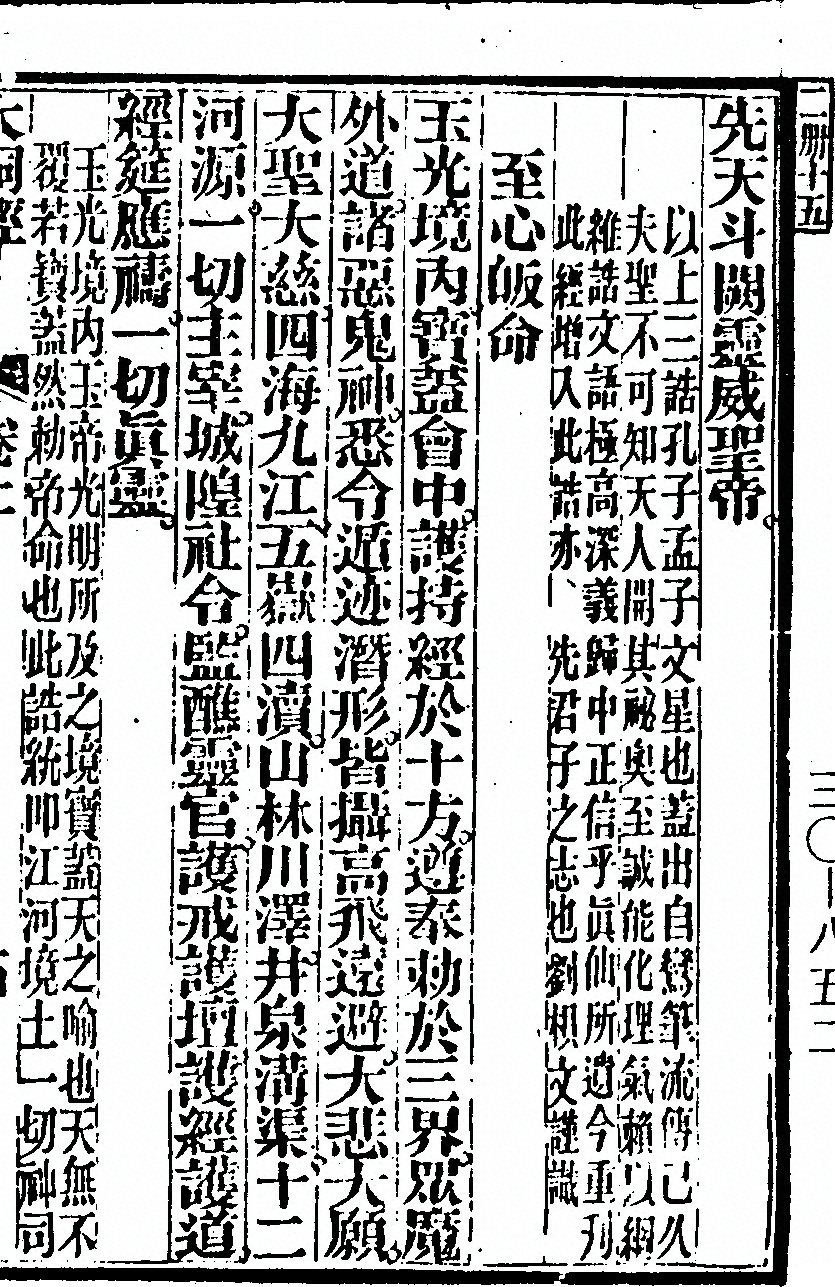 二册十五
三〇—八五二
先天斗闕靈威聖帝
以上三誥孔子孟子文星也蓋出自鸞筆流傳已久
夫聖不可知天人開其祕奧至誠能化理氣賴以綱
維誥文語極高深義歸中正信乎眞仙所遺今重刊
此經增入此誥亦、先君子之志也劉棖文謹識
至心皈命
玉光境內寶蓋會中護持經於十方遵奉勅於三界眾魔
外道諸惡鬼神悉令遁迹潛形皆攝高飛遠避大悲大願
大聖大慈四海九江五嶽四瀆山林川澤井泉溝渠十二
河源一切主宰城隍社令監醮靈官護戒護壇護經護道
經筵應禱一切眞靈
玉光境內玉帝光明所及之境寶蓋天之喻也天無不
覆若寶蓋然勅帝命也此誥統叩江河境土一切神司
大洞經 卷二